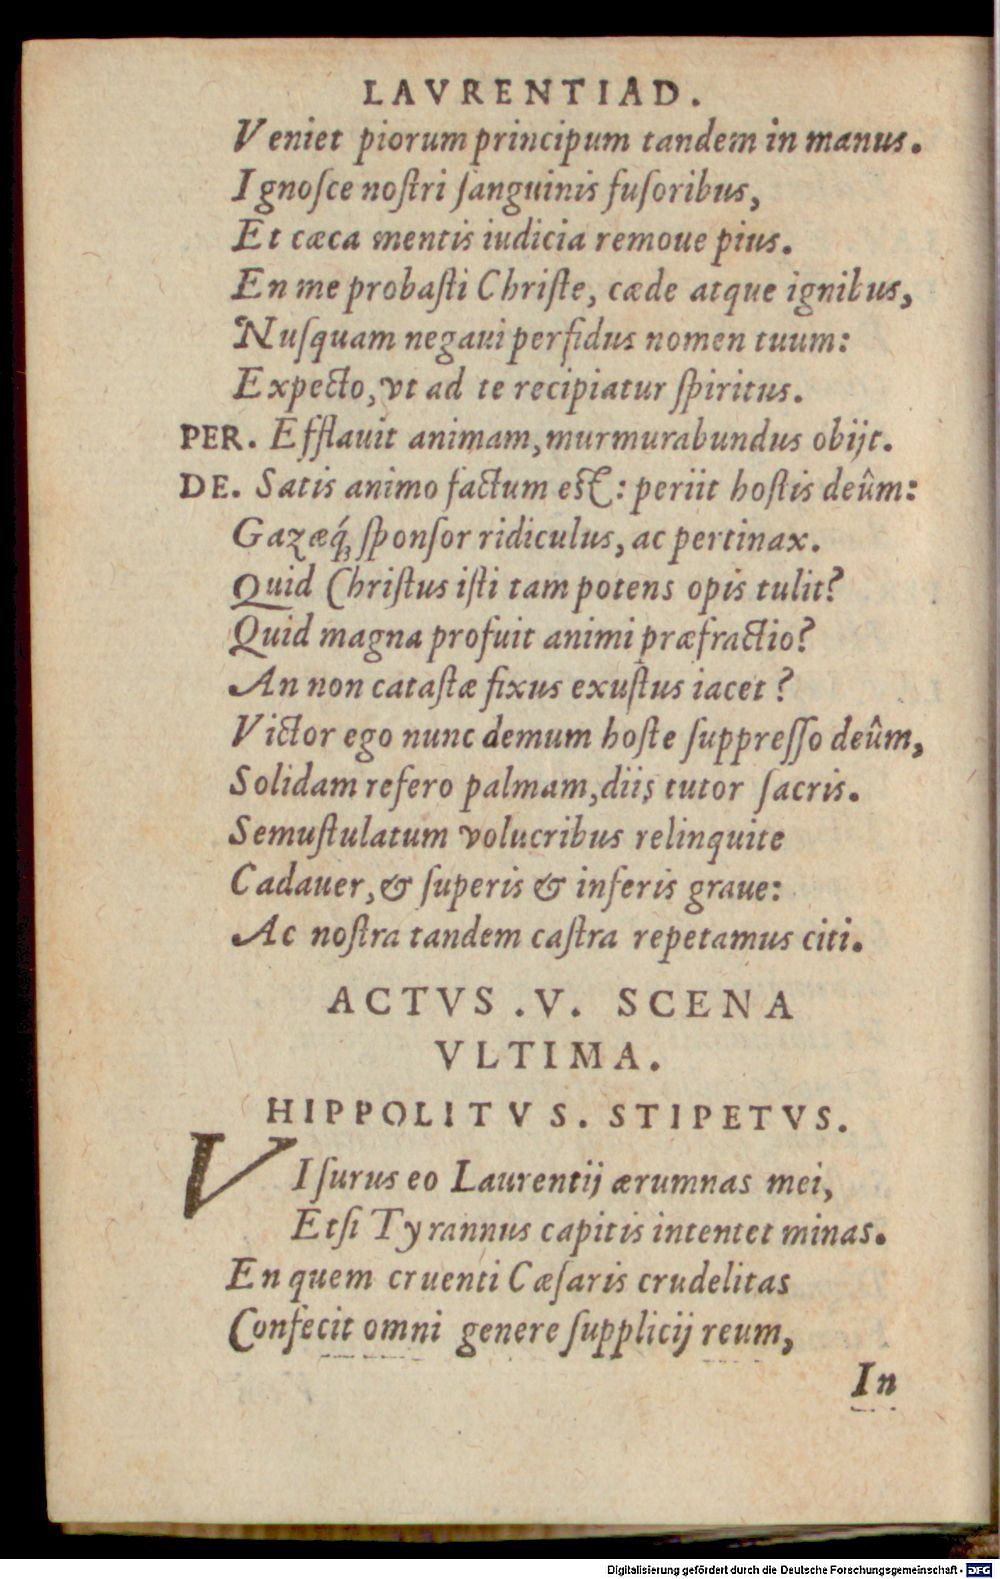 LAVRENTIAD.
Veniet piorum principum tandem in manus.
Ignoſce noſtri ſanguinis fuſoribus,
Et cæca mentis iudicia remoue pius.
En me probaſti Chriſte, cæde atque ignibus,
Nuſquam negaui perfidus nomen tuum:
Expecto, vt ad te recipiatur ſpiritus.
PER. Efflauit animam, murmurabundus obijt.
DE. Satis animo factum eſt: periit hoſtis deûm:
Gazæq́; ſponſor ridiculus, ac pertinax.
Quid Chriſtus iſti tam potens opis tulit?
Quid magna profuit animi præfractio?
An non cataſtæ fixus exuſtus iacet?
Victor ego nunc demum hoſte ſuppreſſo deûm,
Solidam refero palmam, diis tutor ſacris.
Semuſtulatum volucribus relinquite
Cadauer, & ſuperis & inferis graue:
Ac noſtra tandem caſtra repetamus citi.
ACTVS .V. SCENA
VLTIMA.
HIPPOLITVS. STIPETVS.
VIſurus eo Laurentij ærumnas mei,
Etſi Tyrannus capitis intentet minas.
En quem cruenti Cæſaris crudelitas
Confecit omni genere ſupplicij reum,
In
Digitalisierung gefördert durch die Deutsche Forschungsgemeinschaft - DFG